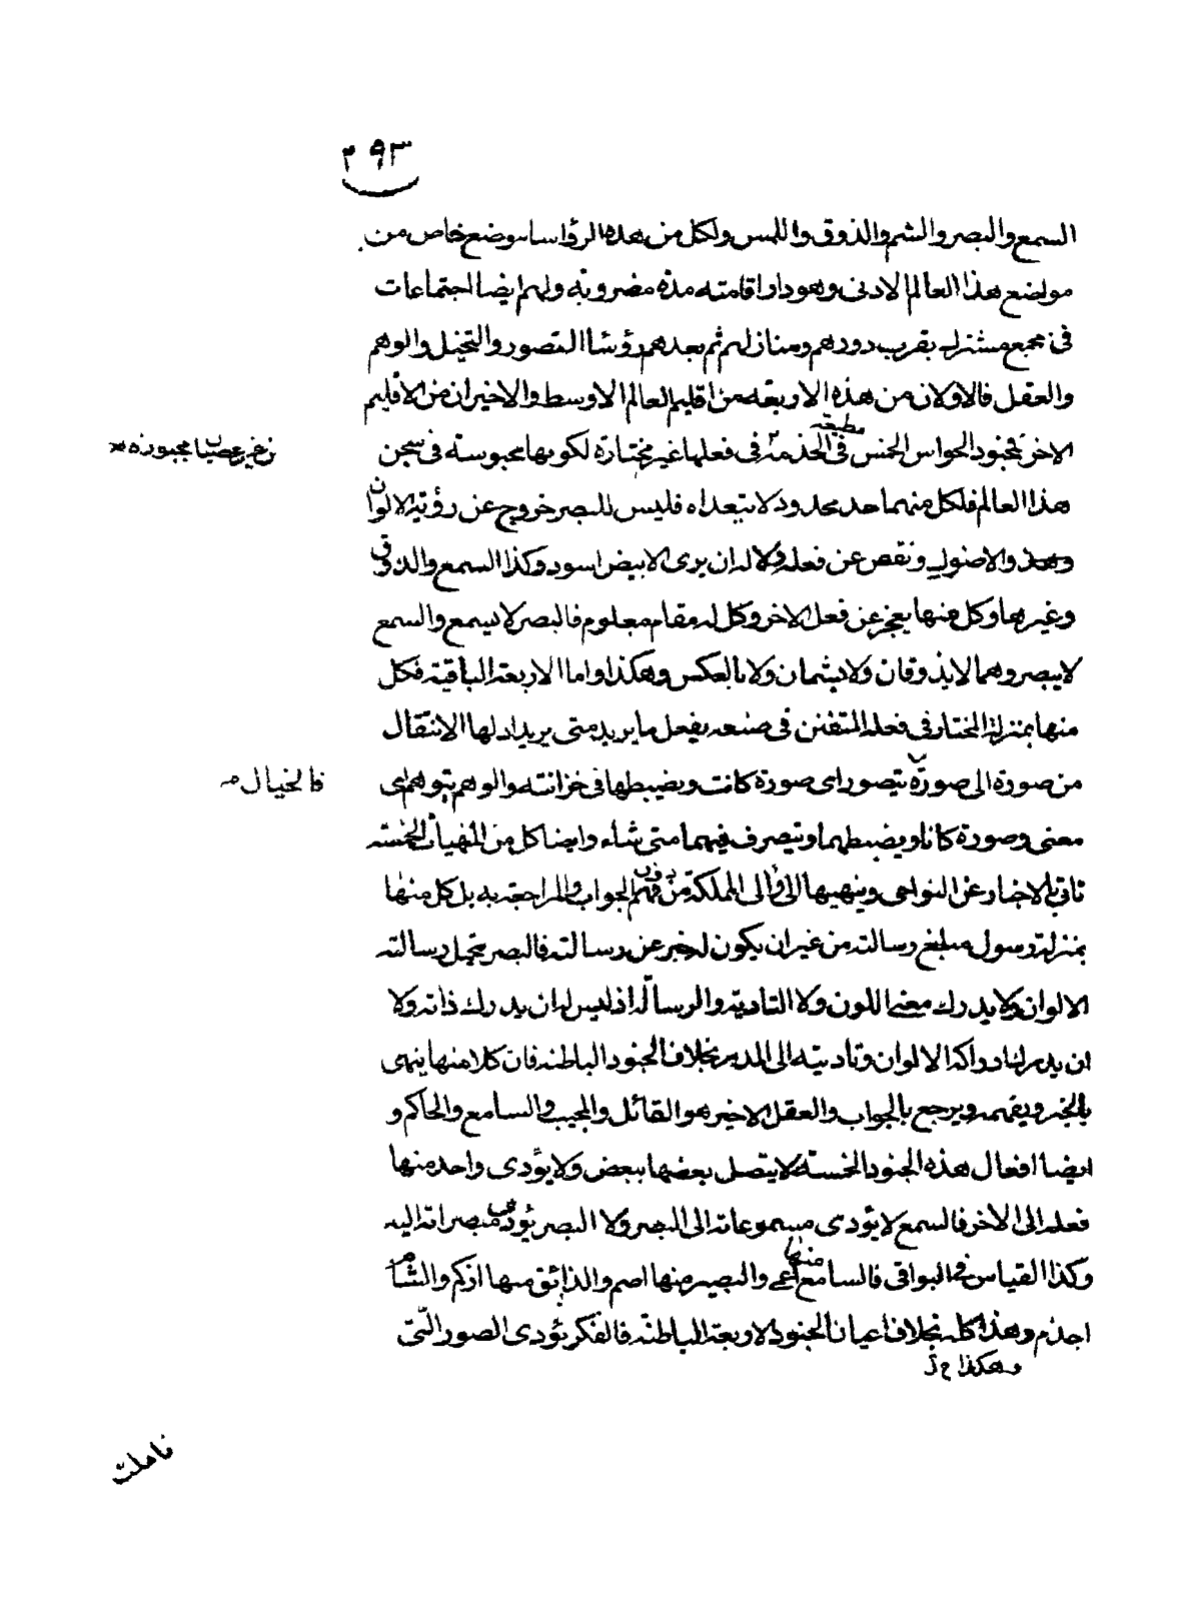 ٢٩٣
السمع والبصر والشم والذوق واللمس ولكل من هذه الرؤاسا موضع خاص من
مواضع هذا العالم الادنى وهو دار اقامته مدة مضروبة ولهم ايضا اجتماعات
فى مجمع مشترك بقرب دورهم ومنازلهم ثم بعدهم رؤسا التصور والتخيل والوهم
والعقل فالاولان من هذه الاربعة من اقليم العالم الاوسط والاخيران من الاقليم
الاخر فجنود الحواس الخمس مطيعة فى الخدمة فى فعلها غير مختارة لكونها محبوسة فى سجن
من غير عصيان مجبورة
هذا العالم فلكل منهما حد محدود لا تتعداه فليس للبصر خروج عن رؤية الالوان
والاضواء ونقص عن فعله ولا له ان يرى الابيض اسود وكذا السمع والذوق
وغيرها وكل منها يعجز عن فعل الاخر وكل له مقام معلوم فالبصر لا يسمع والسمع
لا يبصر وهما لا يذوقان ولا يشمان ولا بالعكس وهكذا واما الاربعة الباقية فكل
منها بمنزلة المختار فى فعله المتفنن فى صنعه يفعل ما يريد متى يريد اذ لها الانتقال
من صورة الى صورة يتصور اى صورة كانت ويضبطها فى خزانته والوهم يتوهم اى
فالخيال
معنى وصورة كانا ويضبطهما ويتصرف فيهما متى شاء وايضا كل من المنهيات الخمسة
تاتى بالاخبار عن النواحى وينهيها الى والى المملكة من دون فهم الجواب والمراجعة به بل كل منها
بمنزلة رسول مبلغ رسالته من غير ان يكون له خبر عن رسالته فالبصر يتحمل رسالته
الالوان ولا يدرك معنى اللون ولا التادية والرسالة اذ ليس له ان يدرك ذاته ولا
ان يدرك ادراكه الالوان وتاديته الى المدبر بخلاف الجنود الباطنة فان كلا منها ينهى
بالخبر ويفهمه ويرجع بالجواب والعقل الاخير هو القائل والمجيب والسامع والحاكم و
ايضا افعال هذه الجنود الخمسة لا يتصل بعضها ببعض ولا يؤدى واحد منها
فعله الى الاخر فالسمع لا يؤدى مسموعاته الى البصر ولا البصر يؤدى مبصراته اليه
وكذا القياس فى البواقى فالسامع منها اعمى والبصير منها اصم والذائق منها ازكم والشام
اجذم وهذا كله بخلاف اعيان الجنود الاربعة الباطنة فالفكر يؤدى الصور التى
وهكذا